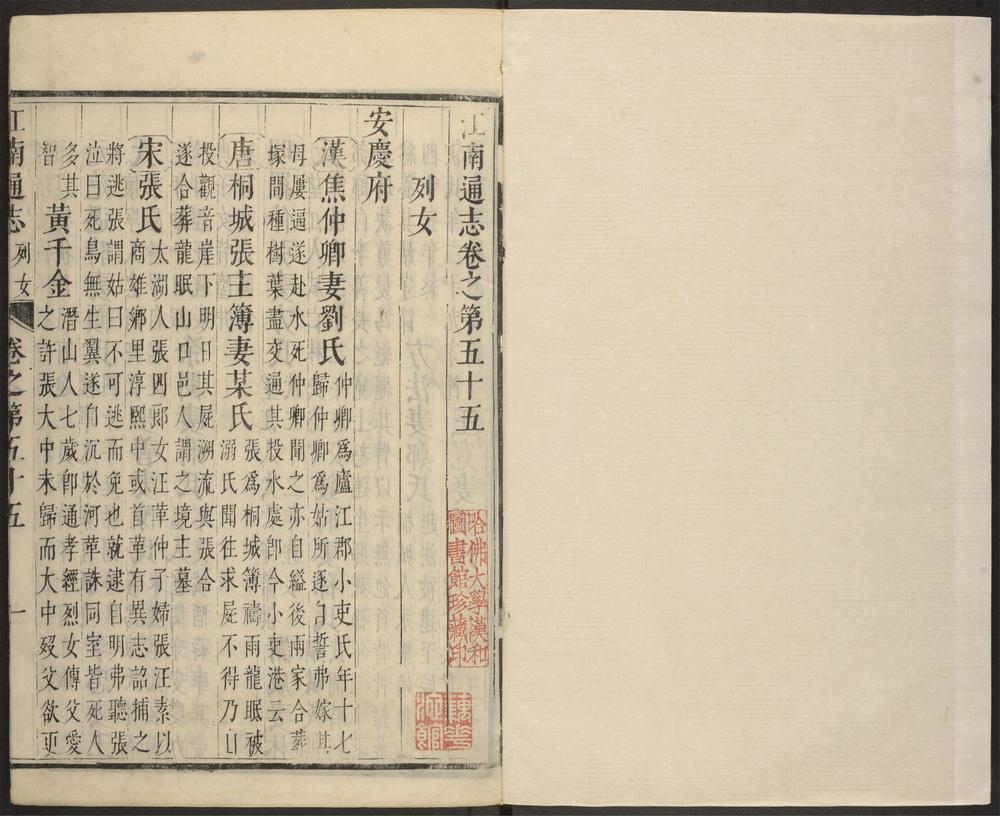 江南通志卷之第五十五
列女
安慶府
漢焦仲卿妻劉氏
仲卿爲廬江郡小吏氏年十七
歸仲卿爲姑所逐自誓弗嫁其
母屢逼遂赴水死仲卿聞之亦自縊後兩家合葬
塚間種樹葉盡交通其投水處卽今小吏港云
唐桐城張主簿妻某氏
張爲桐城簿禱雨龍眠被
溺氏聞往求屍不得乃
投觀音崖下明日其屍溯流與張合
遂合葬龍眠山口邑人謂之境主墓
宋張氏
太湖人張四郎女汪華仲子婦張汪素以
商雄鄉里淳熙中或首華有異志詔捕之
將逃張謂姑曰不可逃而免也就逮自明弗聽張
泣曰死烏無生翼遂自沉於河華誅同室皆死人
多其
智
黃千金
潛山人七歲卽通孝經烈女傳父愛
之許張大中未歸而大中歿父欲更
江南通志
列女
卷之第五十五
一
哈佛大學漢和
圖書館珍藏印